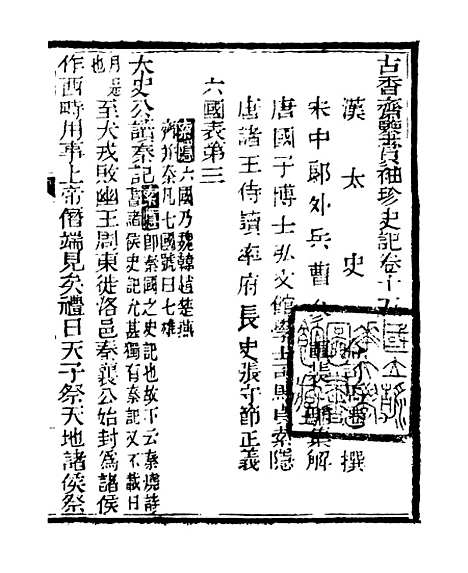 古香齋鑒賞袖珍史記卷十五
漢太史 撰
宋中郎外兵曹參 裴駰集解
唐國子博士弘文館學士司馬貞索隱
唐諸王侍讀率府長史張守節正義
六國表第三
索隱六國乃魏韓趙楚燕
齊并秦凡七國號曰七雄
太史公讀秦記索隱即秦國之史記也故下云秦燒詩
書諸侯史記尤甚獨有秦記又不載日
月是
也
至犬戎敗幽王周東徙洛邑秦襄公始封為諸侯
作西畤用事上帝僭端見矣禮曰天子祭天地諸侯祭